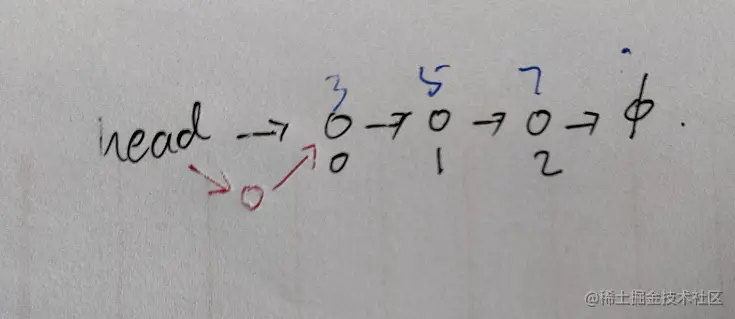 3 5 7
head → O → O → O → ϕ .
0 1 2
@稀土掘金技术社区